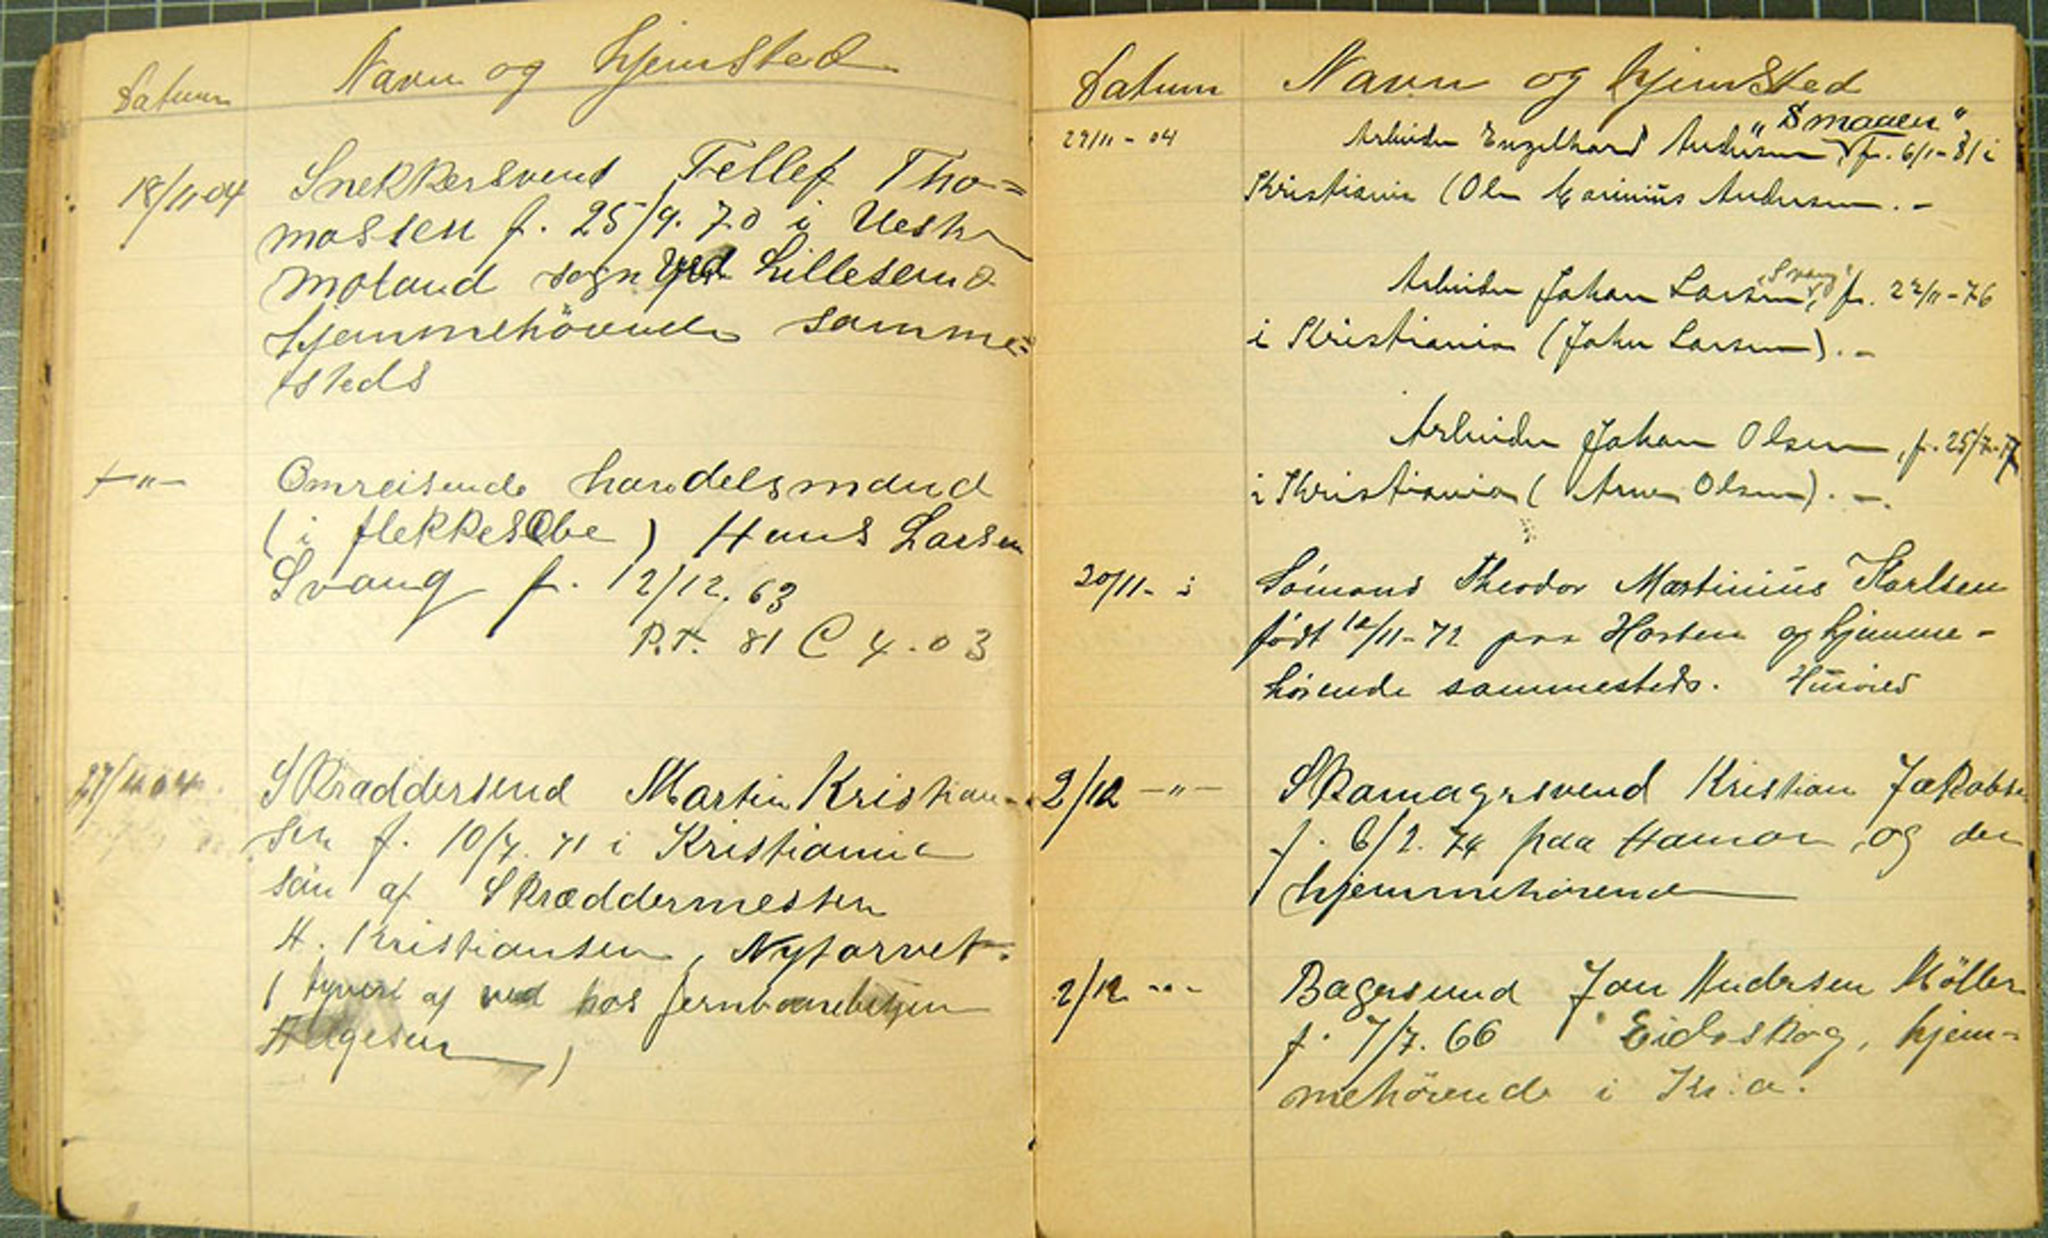 Datum Navn og hjemsted
18/11 04 Snekkersvend Tellef Tho=
massen f. 25/9. 70 i Vestre
moland sogn ved Lillesand
hjemmehörende samme=
steds
—"— Omreisende handelsmand
(i flekkesæbe) Hans Larsen
Svang f. 12/12. 63
P.T. 81 C 4. 03
27/11 04 Skraddersend Martin Kristian-
sen f. 10/7. 71 i Kristiania
sön af Skræddermester
H. Kristiansen, Nytorvet.
( tyveri af ved hos jernbanebetjen
Helgesen )
Datum Navn og hjemsted
29/11 - 04 Arbeider Engelhard Andersen "Smaaen", f. 6/1-81 i
Kristiania (Ole Marinius Andersen. -
Arbeider Johan Larsen, "Svang" f. 22/11-76
i Kristiania (John Larsen). -
Arbeider Johan Olsen, f. 25/7-77
i Kristiania (Arne Olsen). -
20/11- Sömand Theodor Martinius Karlsen
født 12/11-72 paa Horten og hjemme-
hörende sammesteds.
2/12 —"— Skomagersvend Kristian Jakobsen
f. 6/2. 74 paa Hamar og der
hjemmehörende
2/12 —"— Bagersvend Jon Andersen Möller
f. 7/7. 66 Eidsskog, hjem-
mehörende i Kr.a.